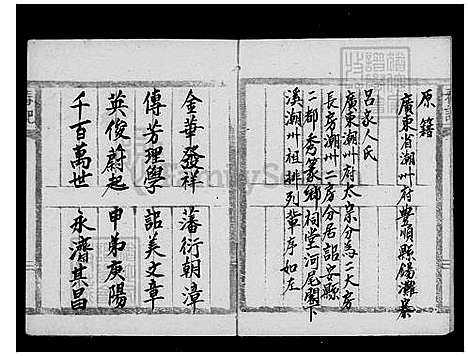 原籍
廣東省潮州府豐順縣湯灘寨
呂家人氏
廣東潮州府太宗分為二大房
長房潮州二房分居詔安縣
二都秀篆鄉祠堂河尾閣下
溪潮州祖排列輩序如左
金華發祥 藩衍朝漳
傳芳理學 詔美文章
英俊蔚起 申弟庚陽
千百萬世 永濟其昌